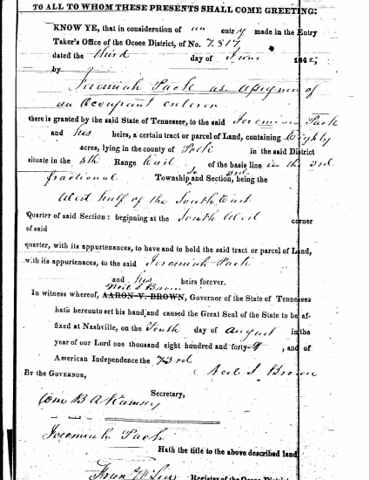 TO ALL TO WHOM THESE PRESENTS SHALL COME GREETING:
KNOW YE, that in consideration of an entry made in the Entry
Taker's Office of the Ocoee District, of No. 7,817
dated the third day of June 184
by
Jeremiah Pack as assignee of
an Occupant enterer
there is granted by the said State of Tennessee, to the said Jeremiah Pack
and his heirs, a certain tract or parcel of Land, containing Eighty
acres, lying in the county of Polk in the said District
situate in the 5th Range East of the basis line in the 3rd
fractional Township and Section, being the
West half of the South East
Quarter of said Section: beginning at the South West corner
of said
quarter, with its appurtenances, to have and to hold the said tract or parcel of Land,
with its appurtenances, to the said Jeremiah Pack
and his heirs forever.
Neil S Brown
In witness whereof, AARON V. BROWN, Governor of the State of Tennessee
hath hereunto set his hand and caused the Great Seal of the State to be af-
fixed at Nashville, on the Tenth day of August in the
year of our Lord one thousand eight hundred and forty and of
American Independence the 73rd
BY THE GOVERNOR, Neil S. Brown
Secretary,
Wm B A Ramsey
Jeremiah Pack
Hath the title to the above described land
Register of the Ocoee District